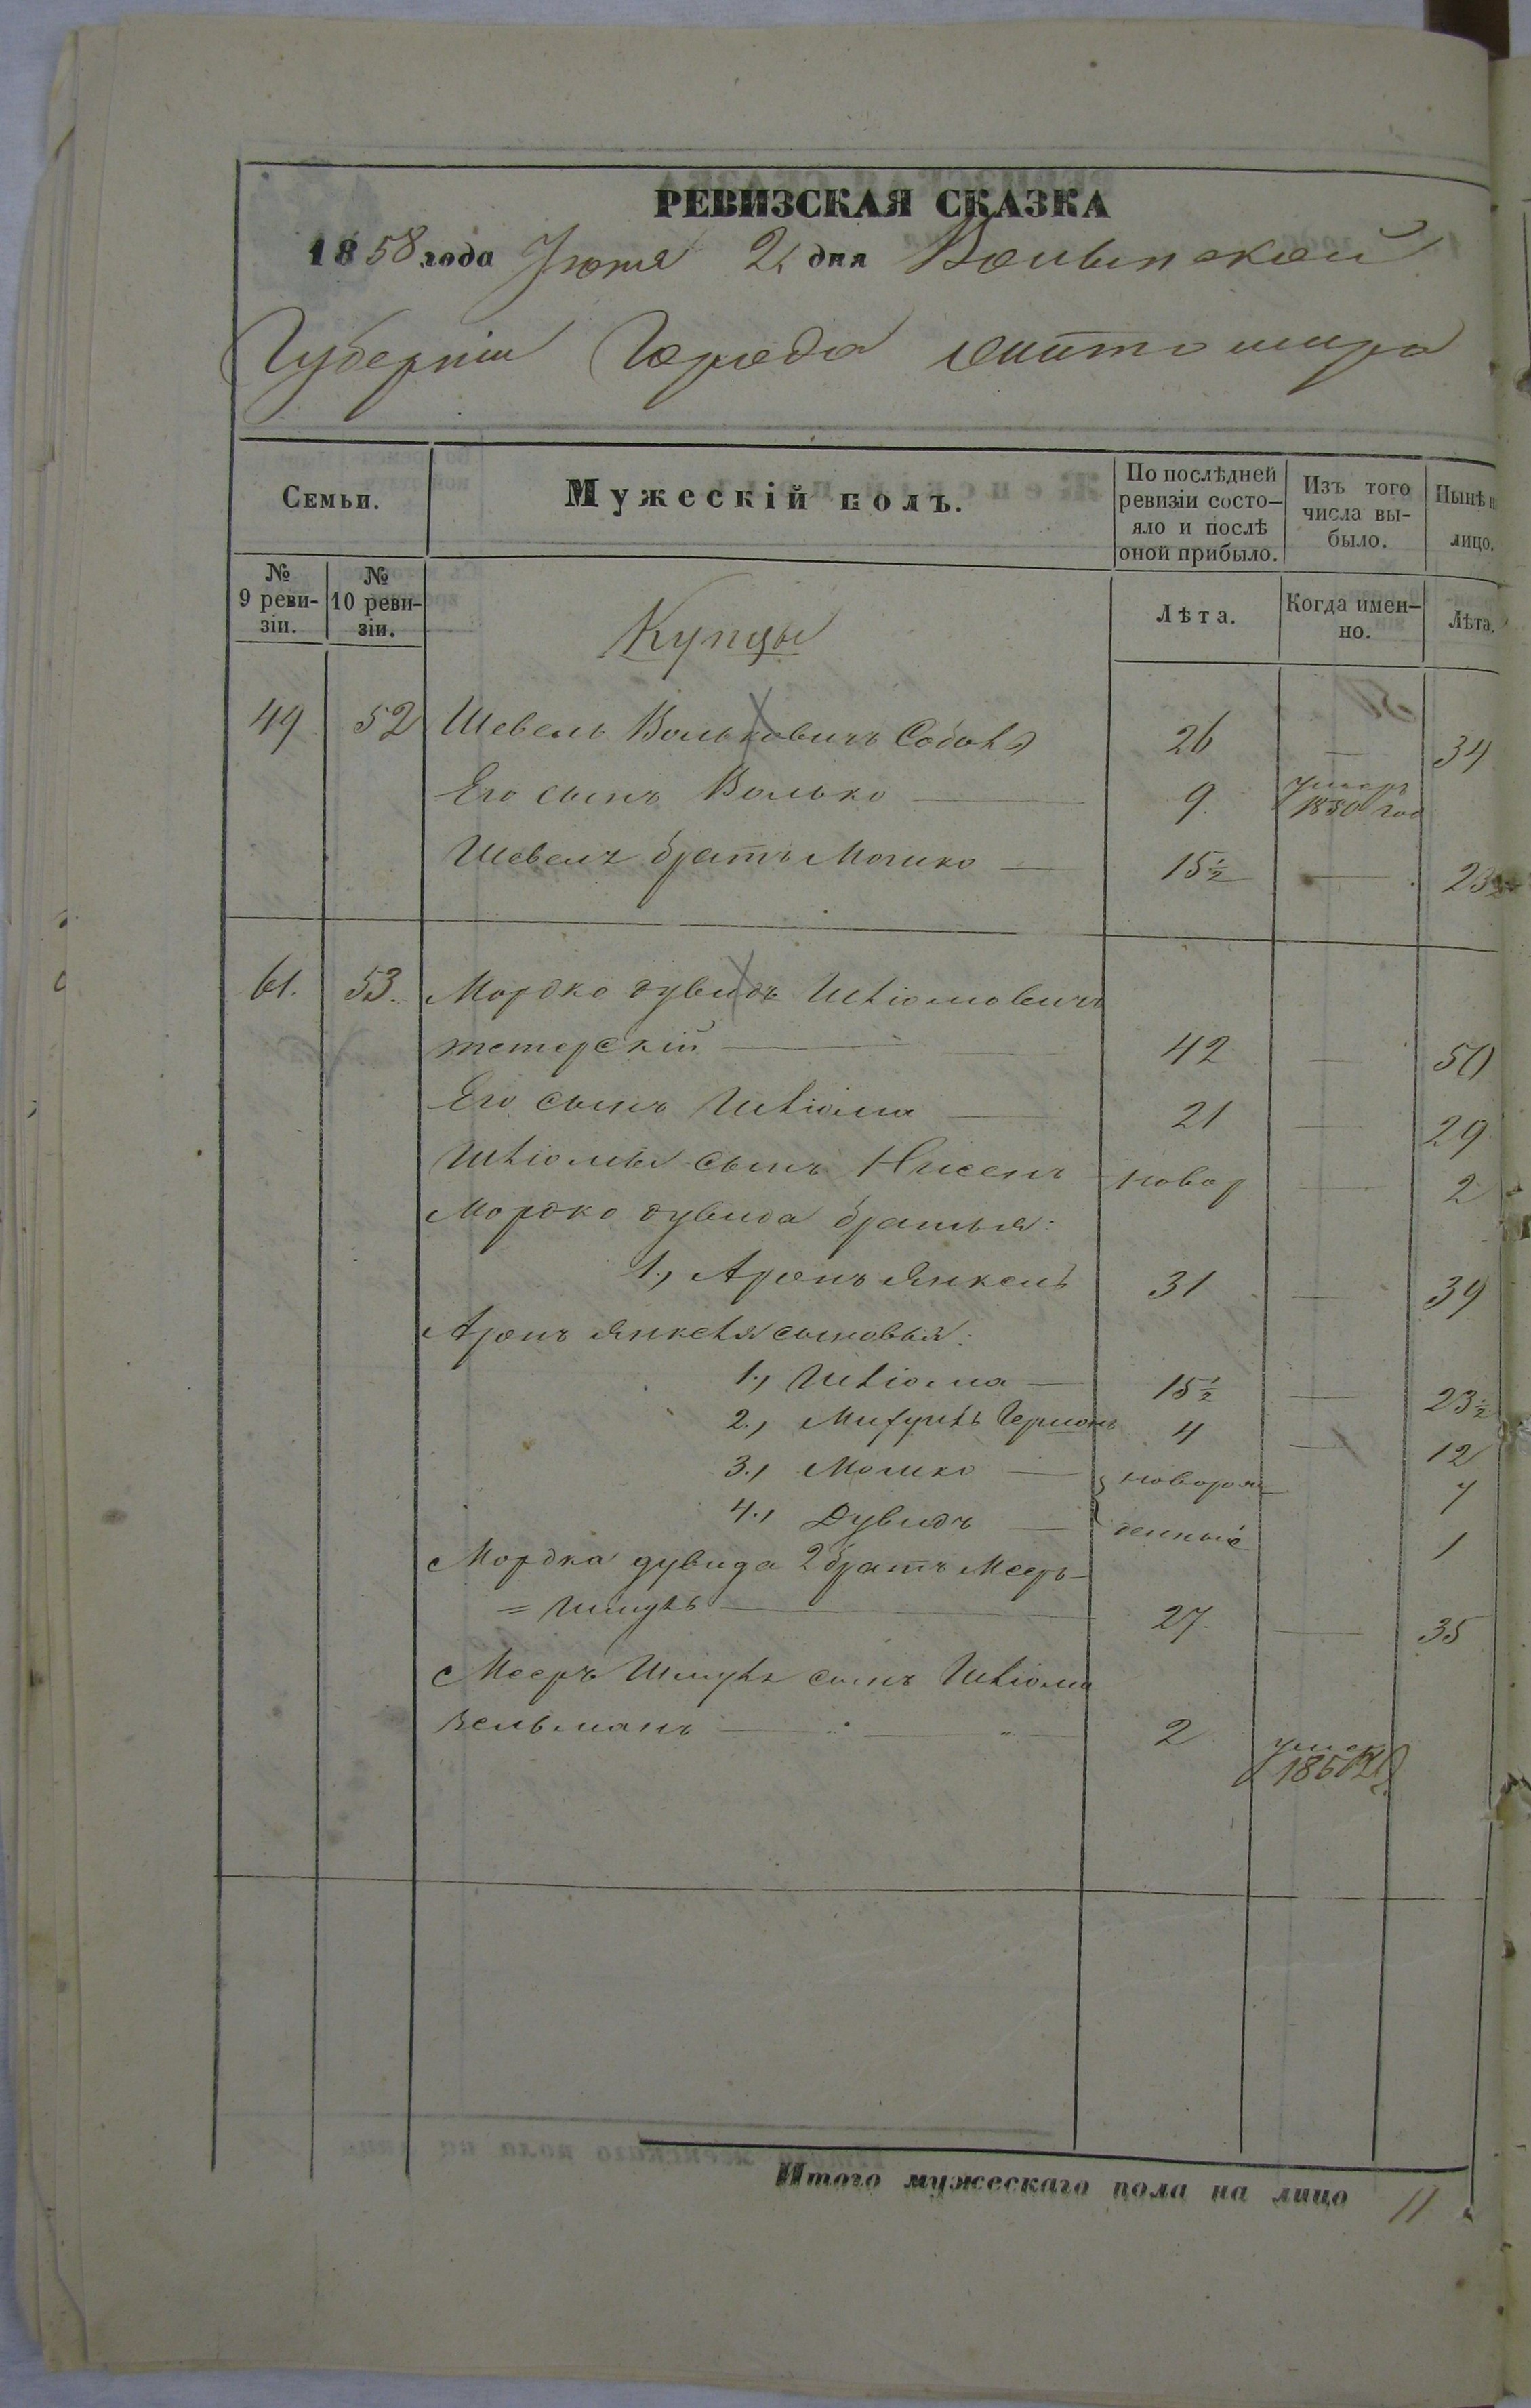 РЕВИЗСКАЯ СКАЗКА
1858 года Іюня 2 дня Волынской
Губерніи Города Житомира
Семьи.
Мужескій полъ.
По послѣдней ревизіи состо-
яло и послѣ оной прибыло.
Изъ того числа вы-
было.
Нынѣ на лицо.
№ 9 реви-
зіи.
№ 10 реви-
зіи.
Купцы
Лѣта.
Когда имен-
но.
Лѣта.
49 52 Шевель Вольковичъ Собель 26 — 34
Его сынъ Волько — 9. умеръ 1850 год
Шевеля братъ Мошко — 15½ — 23½
61. 53. Мордко Дувидъ Шлiомовичъ
Тетерскій — 42 — 50
Его сынъ Шлiома — 21 — 29
Шлiомы сынъ Нисенъ новор — 2
Мордко Дувида братья:
1., Аронъ Янкель 31 — 39
Аронъ Янкеля сыновья:
1., Шлiома — 15½ — 23½
2., Гершонъ 4 — 12
3., Мошко — новорож 7
4., Дувидъ — денные 1
Мордка Дувида 2 братъ Мееръ
= Шмуль — 27. — 35
Мееръ Шмуля сынъ Шлiома
Зельманъ — 2 умер
Итого мужескаго пола на лицо 11